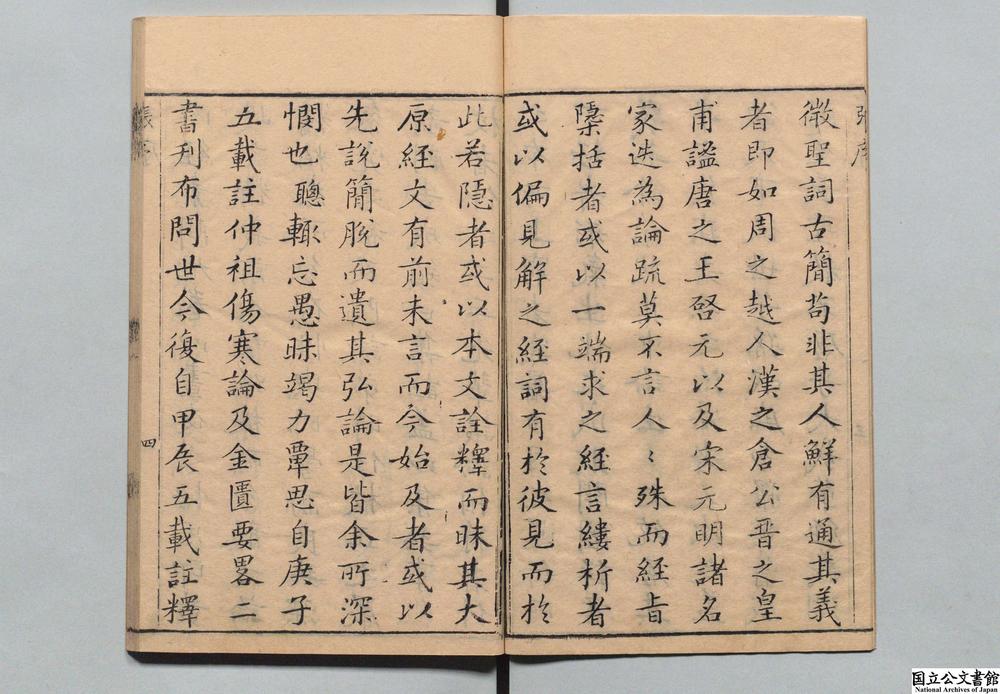 微聖詞古簡苟非其人鮮有通其義
者即如周之越人漢之倉公晋之皇
甫謐唐之王啓元以及宋元明諸名
家迭為論疏莫不言人〻殊而經旨
隱括者或以一端求之經言縷析者
或以偏見解之經詞有於彼見而於
此若隱者或以本文詮釋而昧其大
原經文有前未言而今始及者或以
先說簡脫而遺其弘論是皆余所深
憫也聰輙忘愚昧竭力覃思自庚子
五載註仲祖傷寒論及金匱要畧二
書刋布問世今復自甲辰五載註釋
四
国立公文書館
National Archives of Japan